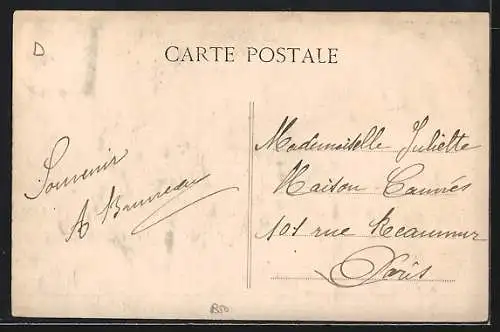 D
CARTE POSTALE
Souvenir
A
Mademoiselle Juliette
Maison
101 rue Reaumur
Paris
B50